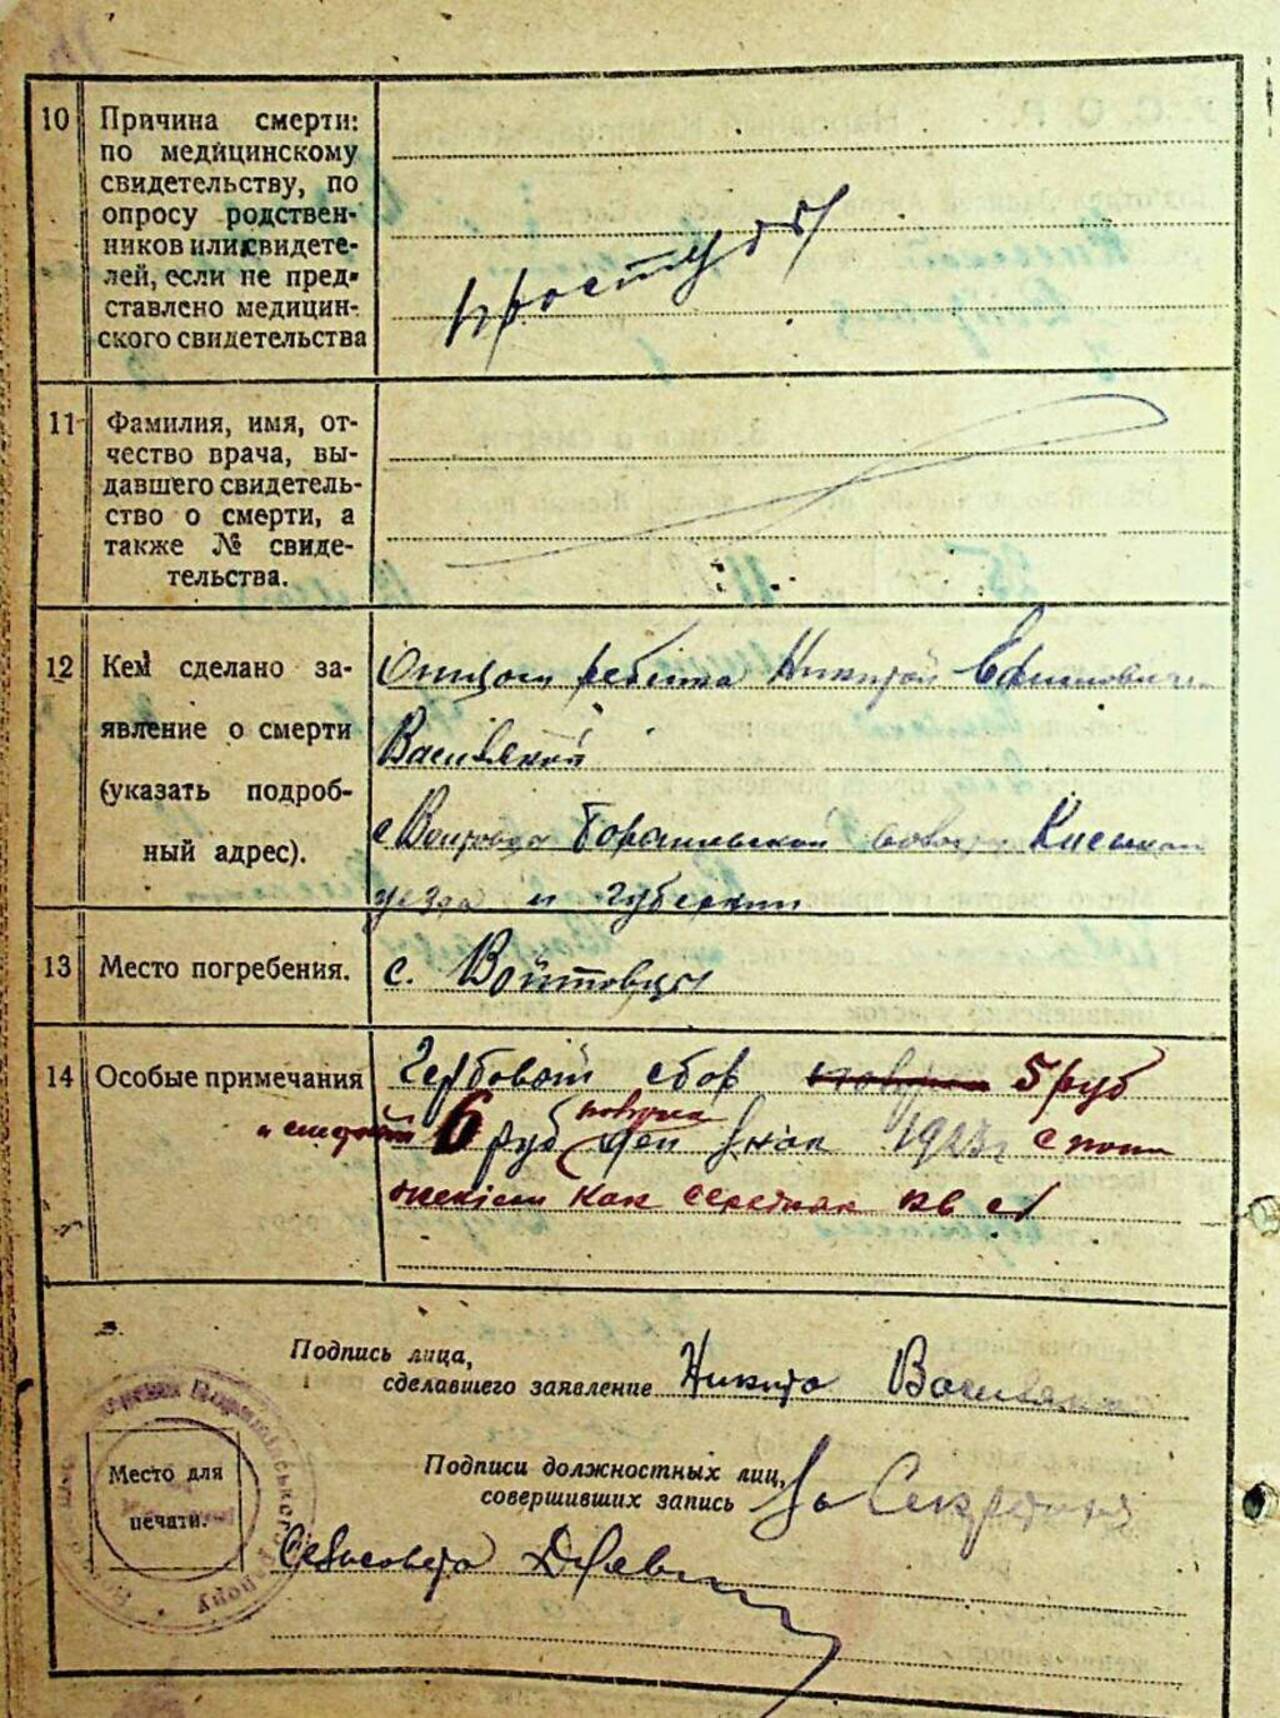 10
Причина смерти:
по медицинскому
свидетельству, по
опросу родствен-
ников или свидете-
лей, если не пред-
ставлено медицин-
ского свидетельства
простуды
11
Фамилия, имя, от-
чество врача, вы-
давшего свидетель-
ство о смерти, а
также № свиде-
тельства.
12
Кем сделано за-
явление о смерти
(указать подроб-
ный адрес).
Отцом Никитой Ефимовичем
Василякой
с
уезда и губернии
13
Место погребения.
с. Войтовцы
14
Особые примечания
Гербовый сбор 5 руб
6 руб ден знак 1923г с
как середняк
Подпись лица,
сделавшего заявление Никита Василяка
Место для
печати.
Подписи должностных лиц,
совершивших запись За Секретаря
Сельсовета